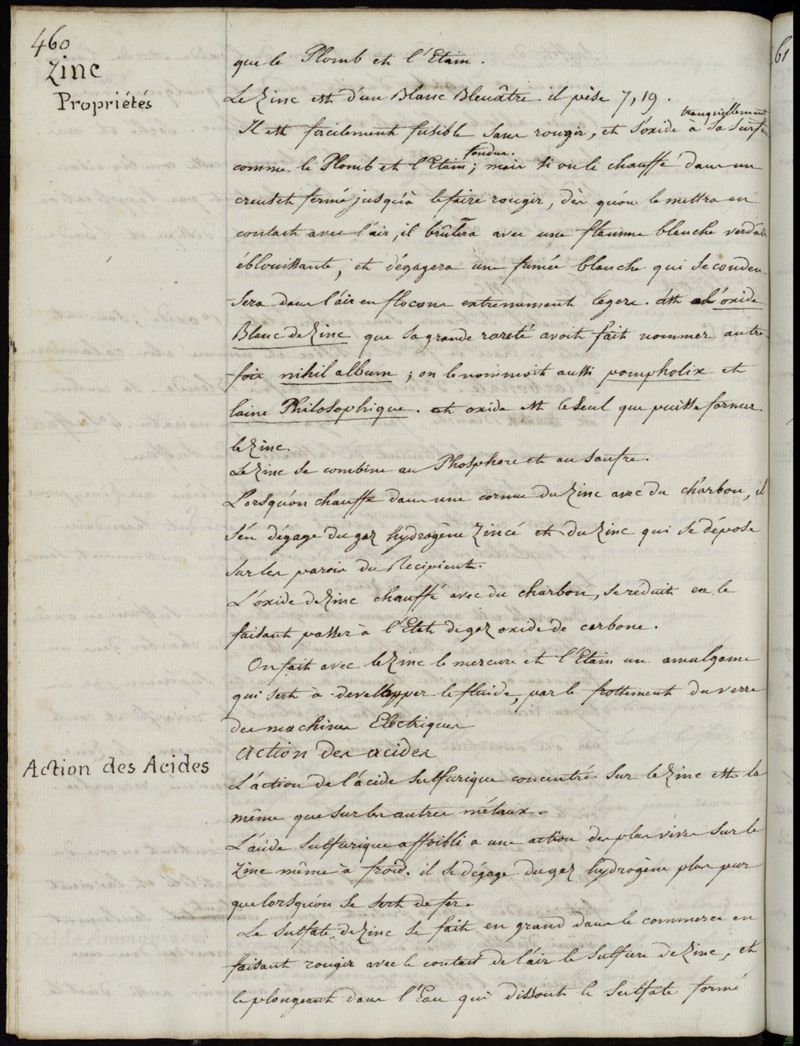 460
Zinc
Propriétés
que le Plomb et l'Etain.
Le Zinc est d'un Blanc Bleuâtre. il pèse 7,19.
tranquillement
Il est facilement fusible sans rougir, et s'oxide à sa surface
fondue.
comme le Plomb et l'Etain; mais si on le chauffe dans un
creuset fermé jusqu'à le faire rougir, dès qu'on le mettra en
contact avec l'air, il brûlera avec une flamme blanche verdâtre
éblouissante, et dégagera une fumée blanche qui se conden-
sera dans l'air en flocons extremement legers. c'est l'oxide
Blanc de Zinc que sa grande rareté avoit fait nommer autre-
fois nihil album; on le nommoit aussi pompholix et
laine Philosophique. cet oxide est le seul que puisse former
le Zinc.
Le Zinc se combine au Phosphore et au soufre.
Lorsqu'on chauffe dans une cornue du Zinc avec du charbon, il
s'en dégage du gaz hydrogène Zincé et du Zinc qui se dépose
sur les parois du Récipient.
L'oxide de Zinc chauffé avec du charbon, se reduit en le
faisant passer à l'Etat de gaz oxide de carbone.
On fait avec le Zinc le mercure et l'Etain un amalgame
qui sert à develloper le fluide, par le frottement du verre
des machines Electriques
Action des acides
Action des Acides
L'action de l'acide sulfurique concentré sur le Zinc est la
même que sur les autres métaux.
L'acide sulfurique affoibli a une action des plus vives sur le
Zinc même à froid. il se dégage du gaz hydrogène plus pur
que lorsqu'on se sert de fer.
Le sulfate de Zinc se fait en grand dans le commerce en
faisant rougir avec le contact de l'air le sulfure de Zinc, et
le plongeant dans l'Eau qui dissout le sulfate formé
61